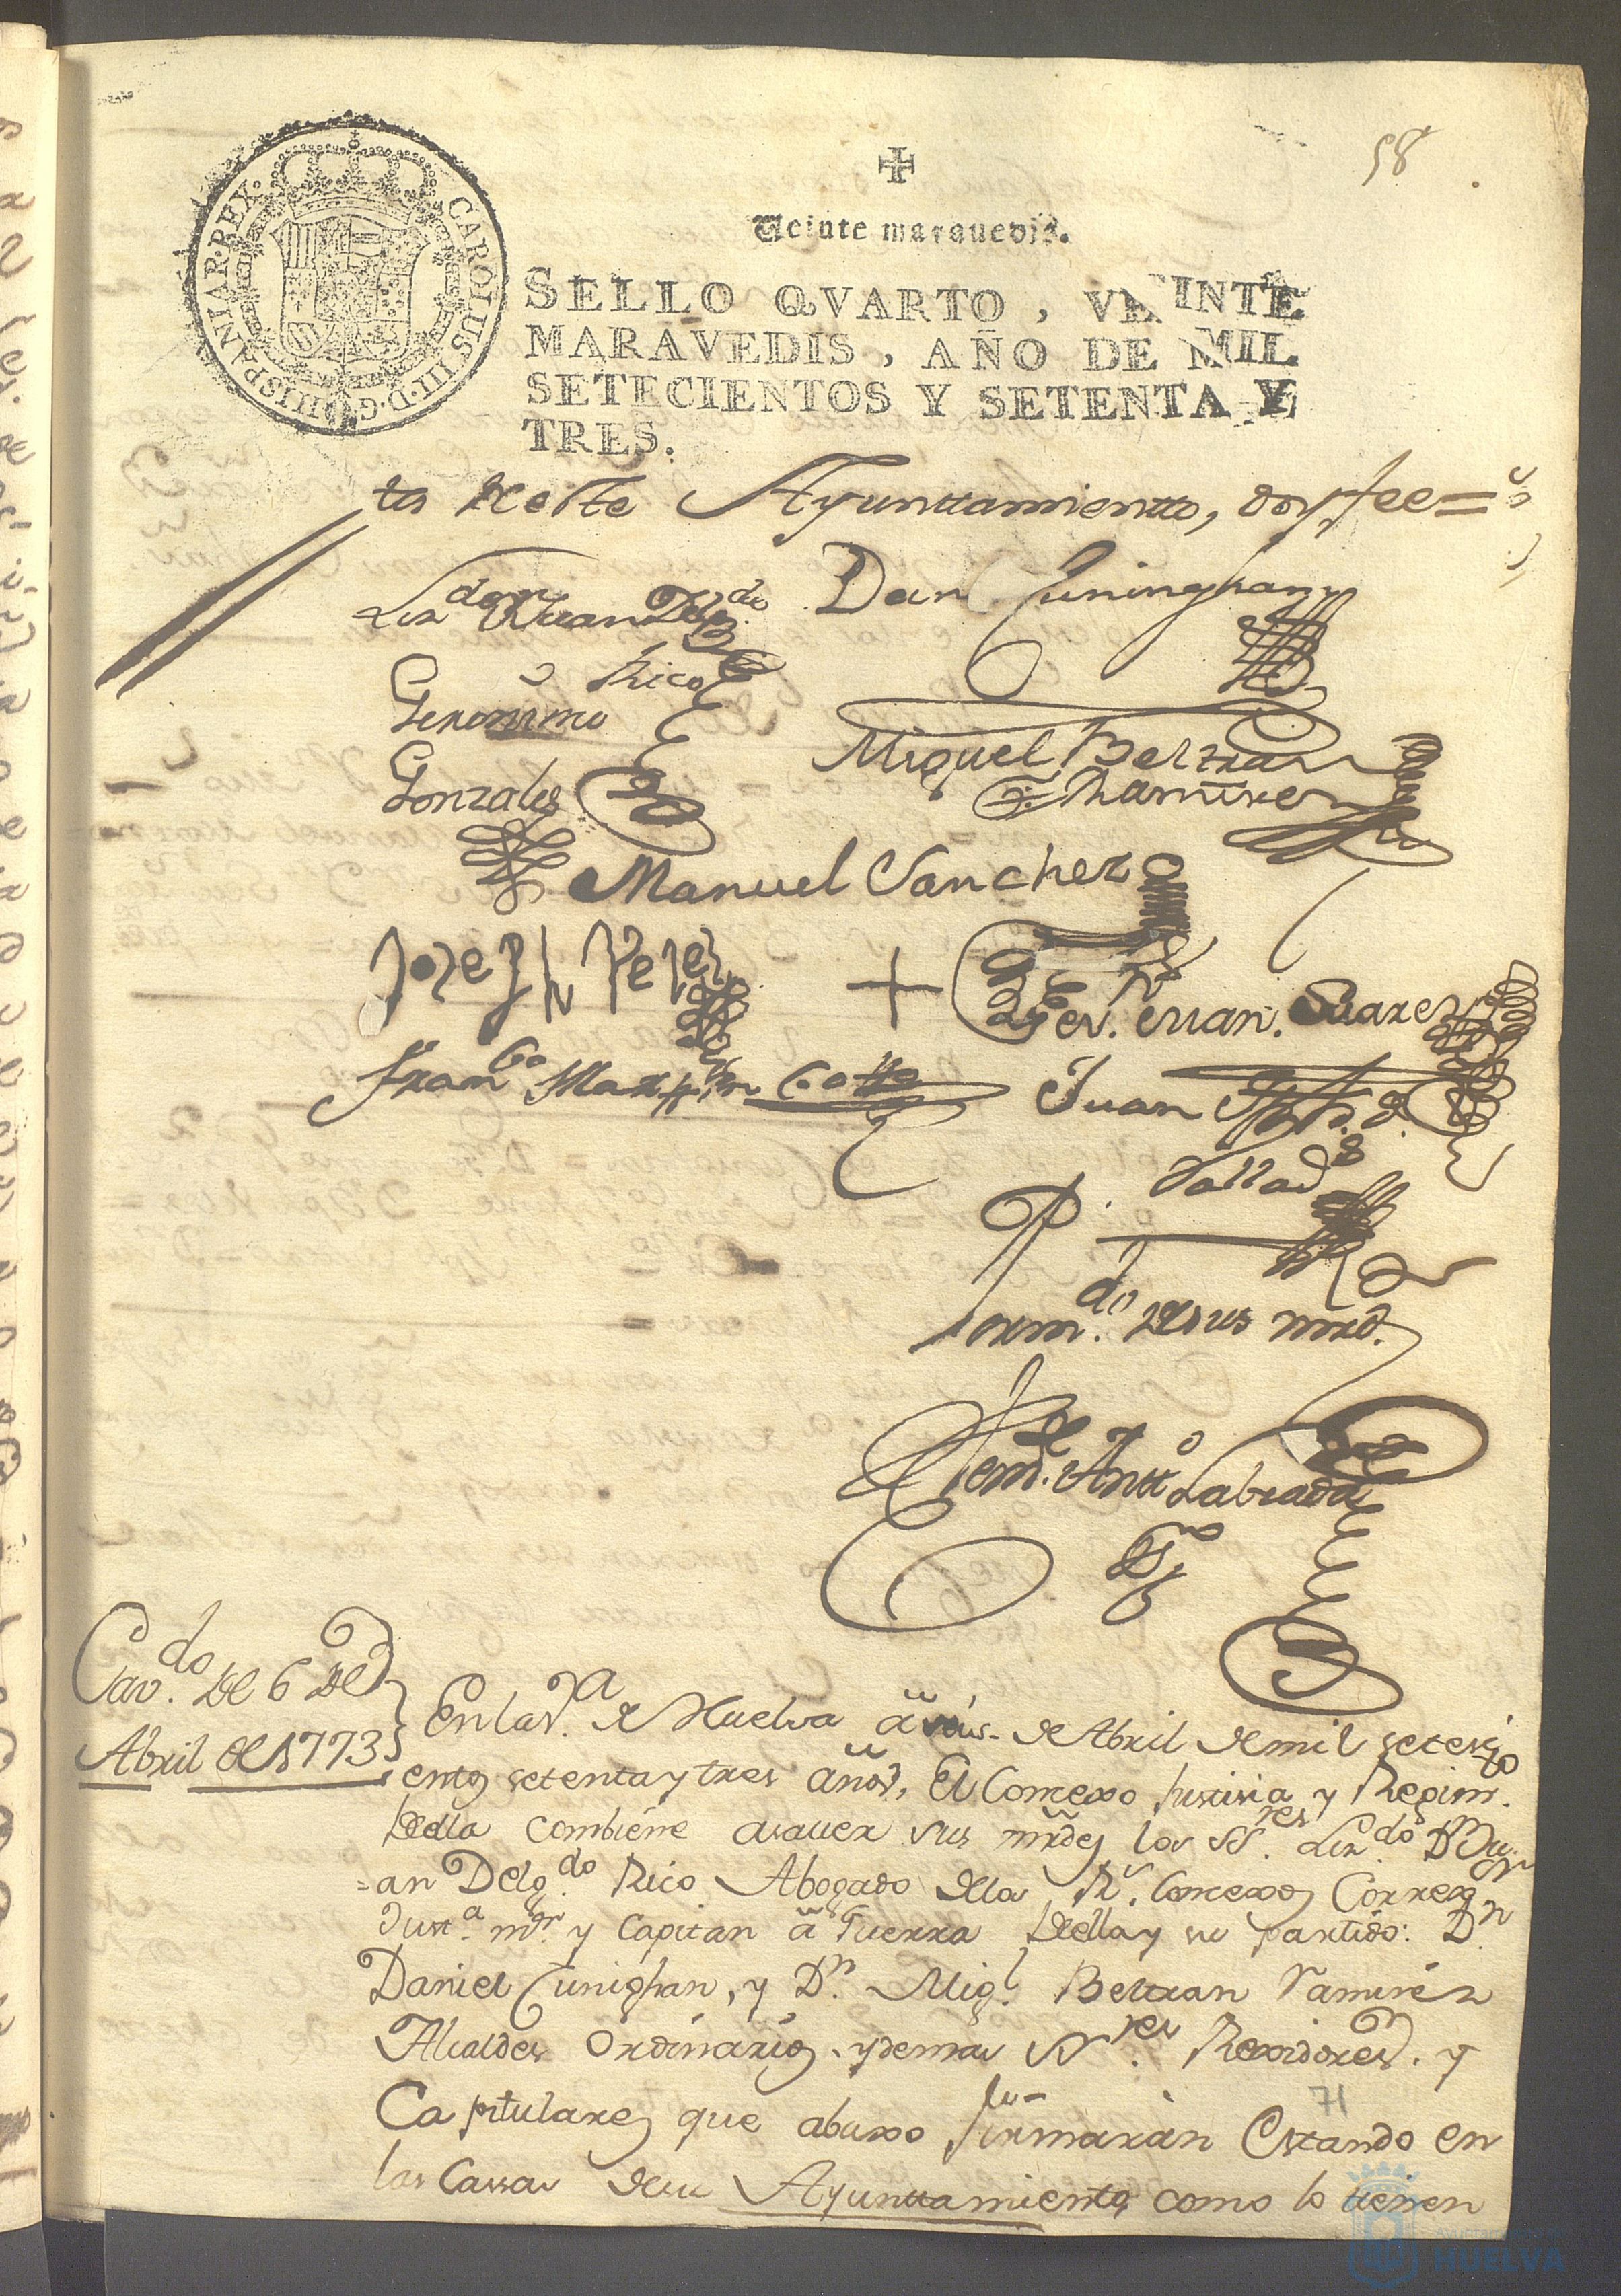 58
Veinte maravedis.
CAROLUS III. D. G. HISPANIAR. REX.
SELLO QVARTO, VEINTE
MARAVEDIS, AÑO DE MIL
SETECIENTOS Y SETENTA Y
TRES.
to deste Ayunttamientto, doy fee =
Lizdo don Juan Delgdo Dan Cuninghan
Rico
Geronimo
Gonzales
Miguel Beltran
Ramirez
Manuel Sanchez
Joseph Perez + Suarez
Franco Martin Cotto Juan
Vallad
P.
Formdo de sus mrd.
Antto Labrada
Cavdo de 6 de
Abril de 1773
En la Va de Huelva a seis de Abril de mil seteci
entos setenta y tres años, El Concexo Justisia y Regimto
della combiene asauer sus mrdes los SSres Lizdo Dn Ju
=an Delgdo Rico Abogado de los Rs. Concexos Correxor
Justa mor y Capitan a Guerra della y su partido: Dn
Daniel Cunighan, y Dn. Migl Beltran Ramirez
Alcaldes Ordinarios, y demas SSres Rexidores, y
Capitulares que abaxo firmaran Estando en
71
las Cassas de su Ayunttamiento como lo tienen
Ayuntamiento de
HUELVA